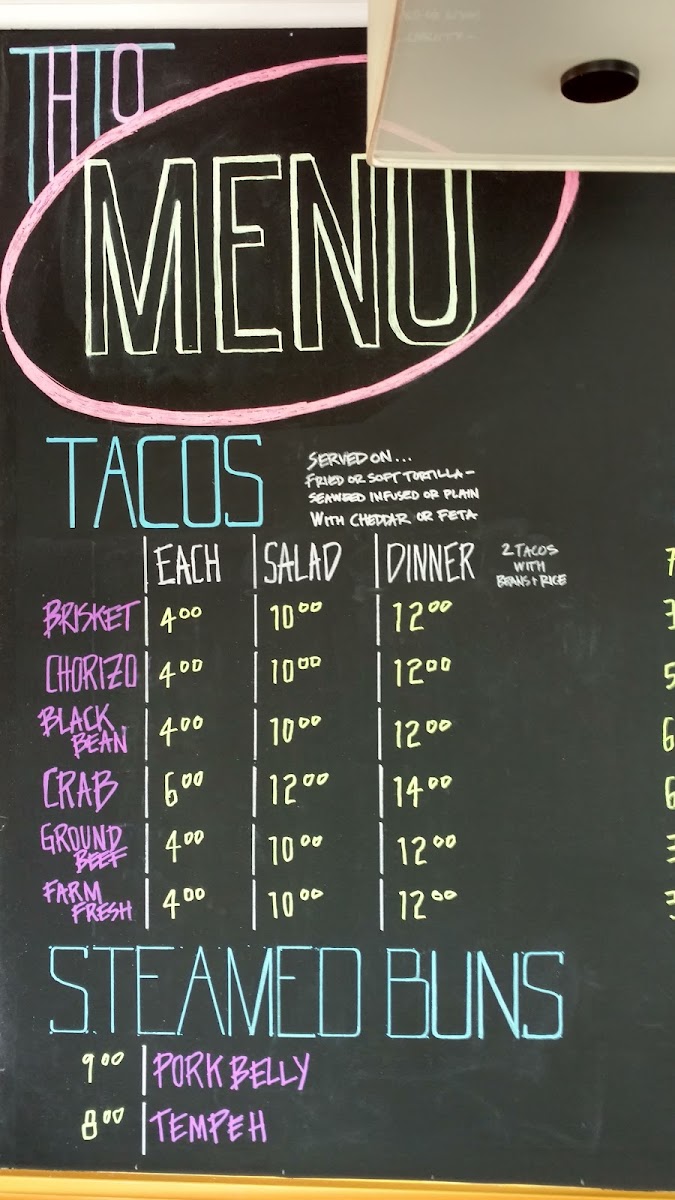 THTO
MENU
TACOS
SERVED ON...
FRIED OR SOFT TORTILLA -
SEAWEED INFUSED OR PLAIN
WITH CHEDDAR OR FETA
EACH SALAD DINNER 2 TACOS
WITH
BEANS + RICE
BRISKET 4.00 10.00 12.00
CHORIZO 4.00 10.00 12.00
BLACK
BEAN 4.00 10.00 12.00
CRAB 6.00 12.00 14.00
GROUND
BEEF 4.00 10.00 12.00
FARM
FRESH 4.00 10.00 12.00
STEAMED BUNS
9.00 PORK BELLY
8.00 TEMPEH